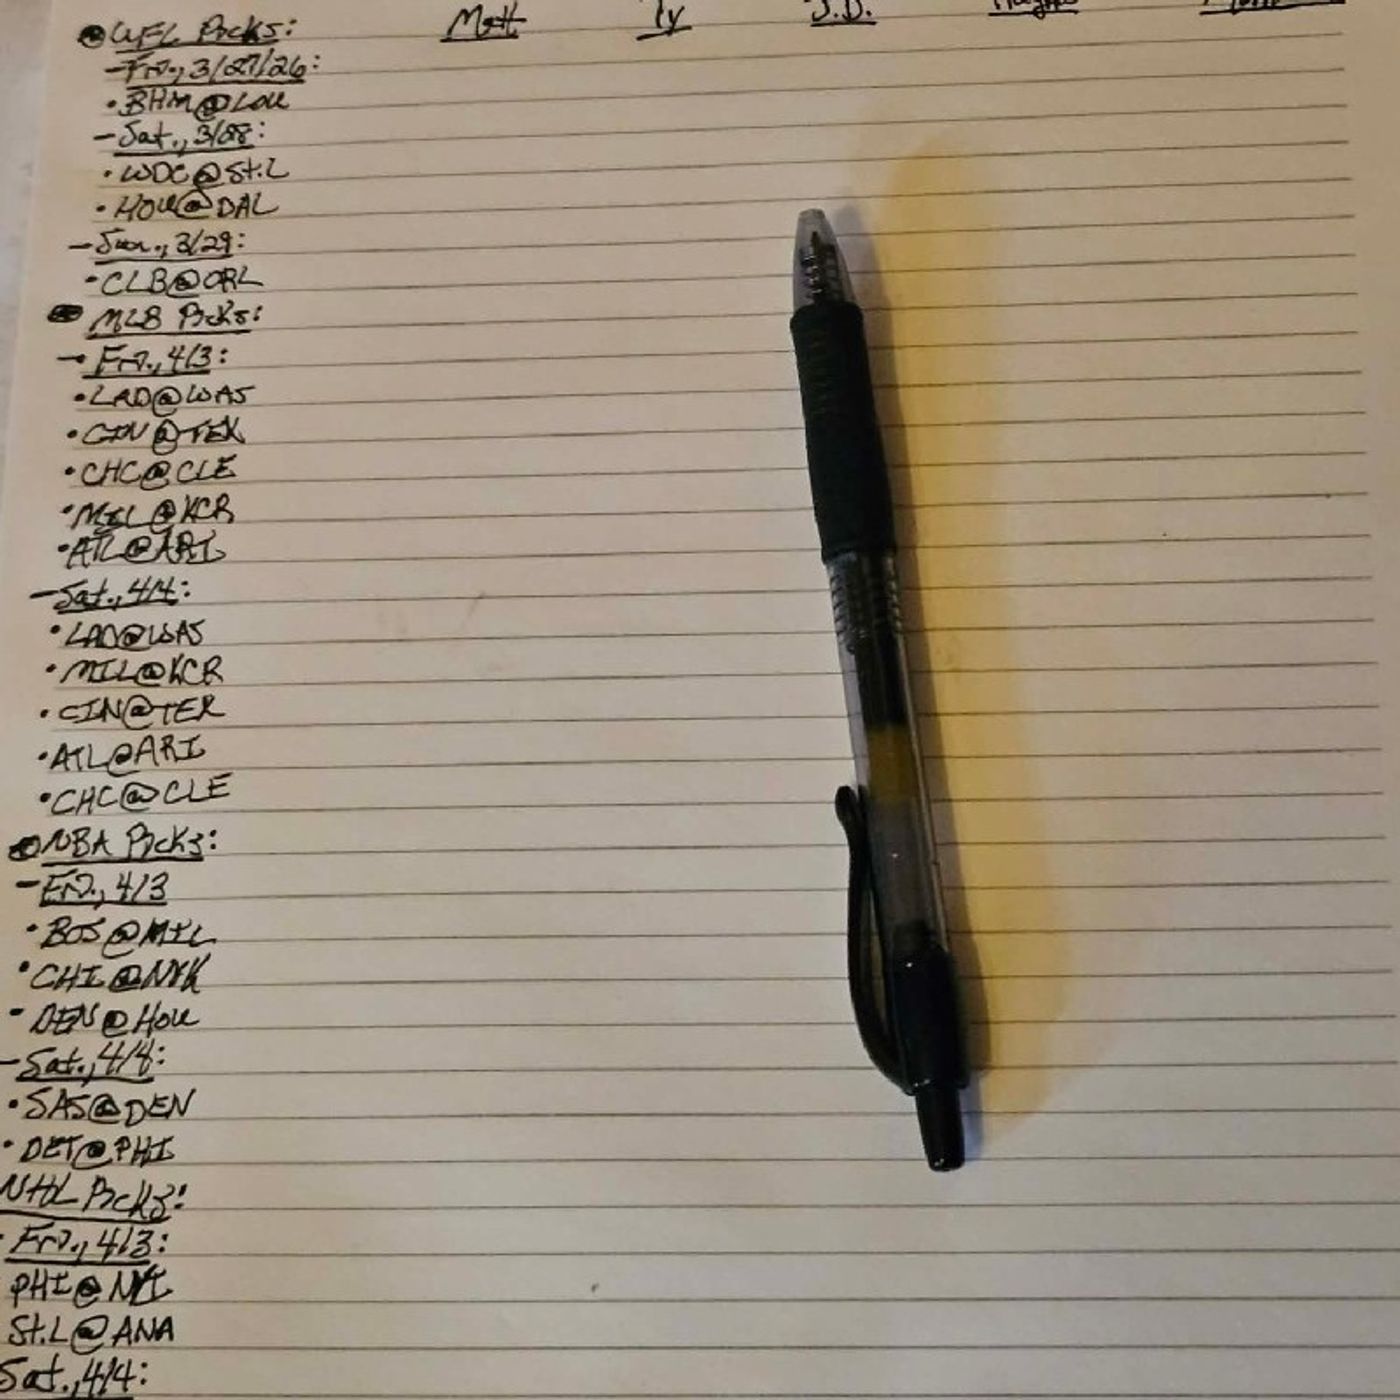 UFL Picks: Matt Ty J.D.
-Fri., 3/27/26:
•BHM@LOU
-Sat., 3/28:
•WDC@St.L
•HOU@DAL
-Sun., 3/29:
•CLB@ORL
MLB Picks:
-Fri., 4/3:
•LAD@WAS
•CIN@TEX
•CHC@CLE
•MIL@KCR
•ATL@ARI
-Sat., 4/4:
•LAD@WAS
•MIL@KCR
•CIN@TEX
•ATL@ARI
•CHC@CLE
NBA Picks:
-Fri., 4/3
•BOS@MIL
•CHI@NYK
•DEN@HOU
-Sat., 4/4:
•SAS@DEN
•DET@PHI
NHL Picks:
Fri., 4/3:
PHI@NYI
St.L@ANA
Sat., 4/4: